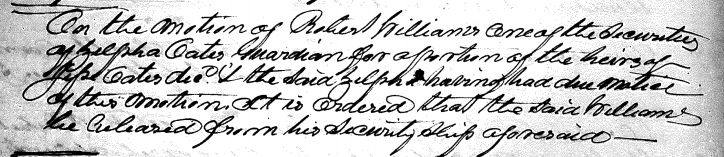 On the motion of Robert Williams one of the Securities
of Zilpha Cates Guardian for a portion of the heirs of
Cates dec'd & the said Zilpha having had due notice
of this motion. It is Ordered that the said Williams
be Releared from his Security Ship aforesaid —